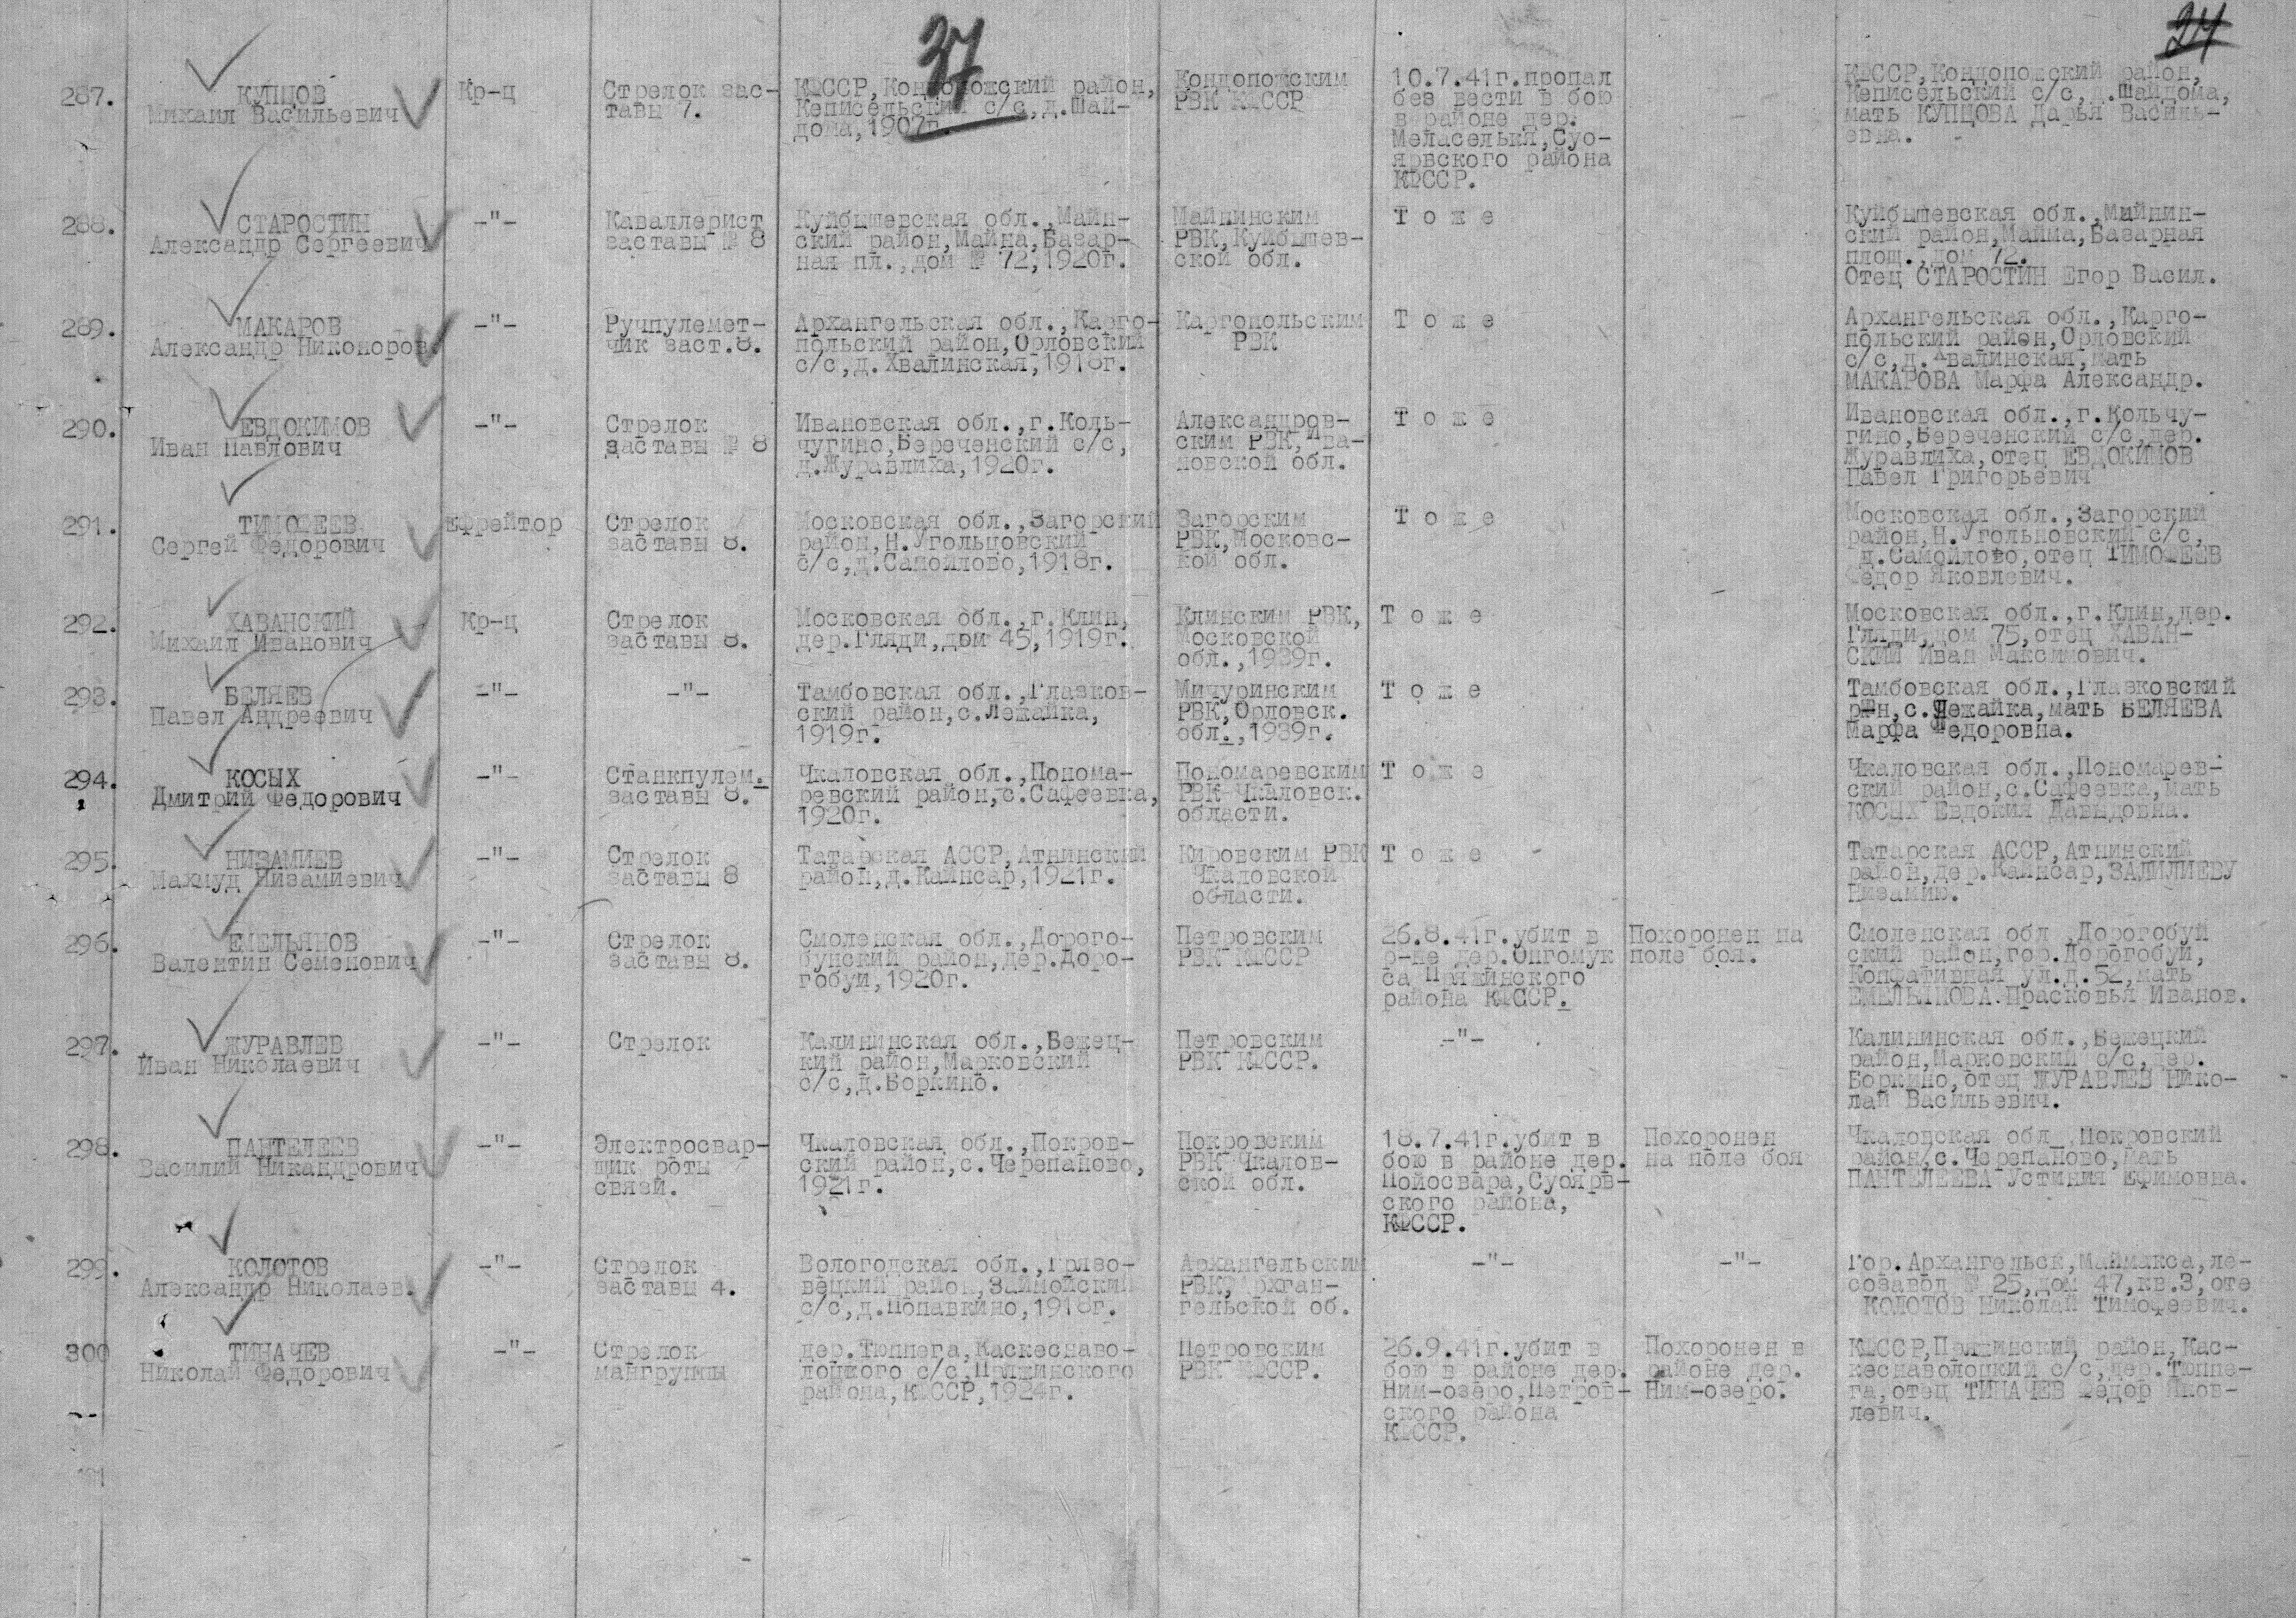 37
24
287. КУПЦОВ
Михаил Васильевич
Кр-ц
Стрелок зас-
тавы 7.
КФССР,Кондопожский район,
Кеписельский с/с,д.Шай-
дома,1907г.
Кондопожским
РВК КФССР
10.7.41г.пропал
без вести в бою
в районе дер.
Меласелькя,Суо-
ярвского района
КФССР.
КФССР,Кондопожский район,
Кеписельский с/с,д.Шайдома,
мать КУПЦОВА Дарья Василь-
евна.
288. СТАРОСТИН
Александр Сергеевич
-"-
Каваллерист
заставы № 8
Куйбышевская обл.,Майн-
ский район,Майна,Базар-
ная пл.,дом № 72,1920г.
Майнинским
РВК,Куйбышев-
ской обл.
Т о ж е
Куйбышевская обл.,Майнин-
ский район,Майма,Базарная
площ.,дом 72.
Отец СТАРОСТИН Егор Васил.
289. МАКАРОВ
Александр Никоноров.
-"-
Ручпулемет-
чик заст.8.
Архангельская обл.,Карго-
польский район,Орловский
с/с,д.Хвалинская,1918г.
Каргопольским
РВК
Т о ж е
Архангельская обл.,Карго-
польский район,Орловский
с/с,д.Хвалинская,мать
МАКАРОВА Марфа Александр.
290. ЕВДОКИМОВ
Иван Павлович
-"-
Стрелок
заставы № 8
Ивановская обл.,г.Коль-
чугино,Береченский с/с,
д.Журавлиха,1920г.
Александров-
ским РВК,Ива-
новской обл.
Т о ж е
Ивановская обл.,г.Кольчу-
гино,Береченский с/с,дер.
Журавлиха,отец ЕВДОКИМОВ
Павел Григорьевич
291. ТИМОФЕЕВ
Сергей Федорович
Ефрейтор
Стрелок
заставы 8.
Московская обл.,Загорский
район,Н.Угольцовский
с/с,д.Самойлово,1918г.
Загорским
РВК,Московс-
кой обл.
Т о ж е
Московская обл.,Загорский
район,Н.Угольновский с/с,
д.Самойлово,отец ТИМОФЕЕВ
Федор Яковлевич.
292. ХАВАНСКИЙ
Михаил Иванович
Кр-ц
Стрелок
заставы 8.
Московская обл.,г.Клин,
дер.Гляди,дом 45,1919г.
Клинским РВК,
Московской
обл.,1939г.
Т о ж е
Московская обл.,г.Клин,дер.
Гляди,дом 75,отец ХАВАН-
СКИЙ Иван Максимович.
293. БЕЛЯЕВ
Павел Андреевич
-"-
-"-
Тамбовская обл.,Глазков-
ский район,с.Лежайка,
1919г.
Мичуринским
РВК,Орловск.
обл.,1939г.
Т о ж е
Тамбовская обл.,Глазковский
р-н,с.Лежайка,мать БЕЛЯЕВА
Марфа Федоровна.
294. КОСЫХ
Дмитрий Федорович
-"-
Станкпулем.
заставы 8.
Чкаловская обл.,Понома-
ревский район,с.Сафеевка,
1920г.
Пономаревским
РВК Чкаловск.
области.
Т о ж е
Чкаловская обл.,Пономарев-
ский район,с.Сафеевка,мать
КОСЫХ Евдокия Давыдовна.
295. НИЗАМИЕВ
Махмуд Низамиевич
-"-
Стрелок
заставы 8
Татарская АССР,Атнинский
район,д.Кайнсар,1921г.
Кировским РВК
Чкаловской
области.
Т о ж е
Татарская АССР,Атнинский
район,дер.Кайнсар,ЗАЛИЛИЕВУ
Низамию.
296. ЕМЕЛЬЯНОВ
Валентин Семенович
-"-
Стрелок
заставы 8.
Смоленская обл.,Дорого-
бунский район,дер.Доро-
гобуй,1920г.
Петровским
РВК КФССР
26.8.41г.убит в
р-не дер.Онгомук
са Пряжинского
района КФССР.
Похоронен на
поле боя.
Смоленская обл Дорогобуй
ский район,гор.Дорогобуй,
Копфативная ул.д.52,мать
ЕМЕЛЬЯНОВА.Прасковья Иванов.
297. ЖУРАВЛЕВ
Иван Николаевич
-"-
Стрелок
Калининская обл.,Бежец-
кий район,Марковский
с/с,д.Боркино.
Петровским
РВК КФССР.
-"-
Калининская обл.,Бежецкий
район,Марковский с/с,дер.
Боркино,отец ЖУРАВЛЕВ Нико-
лай Васильевич.
298. ПАНТЕЛЕЕВ
Василий Никандрович
-"-
Электросвар-
щик роты
связи.
Чкаловская обл.,Покров-
ский район,с.Черепаново,
1921г.
Покровским
РВК Чкалов-
ской обл.
18.7.41г.убит в
бою в районе дер.
Пойосвара,Суоярв-
ского района,
КФССР.
Похоронен
на поле боя
Чкаловская обл Покровский
район,с.Черепаново,мать
ПАНТЕЛЕЕВА Устиния Ефимовна.
299. КОЛОТОВ
Александр Николаев.
-"-
Стрелок
заставы 4.
Вологодская обл.,Грязо-
вецкий район,Займойский
с/с,д.Попавкино,1918г.
Архангельским
РВК,Архган-
гельской об.
-"-
-"-
Гор.Архангельск,Маймакса,ле-
созавод № 25,дом 47,кв.3,оте
КОЛОТОВ Николай Тимофеевич.
300 ТИНАЧЕВ
Николай Федорович
-"-
Стрелок
мангруппы
дер.Тюппега,Каскеснаво-
лоцкого с/с,Пряжинского
района,КФССР,1924г.
Петровским
РВК КФССР.
26.9.41г.убит в
бою в районе дер.
Ним-озеро,Петров-
ского района
КФССР.
Похоронен в
районе дер.
Ним-озеро.
КФССР,Пряжинский район,Кас-
кеснаволоцкий с/с,дер.Тюппе-
га,отец ТИНАЧЕВ Федор Яков-
левич.